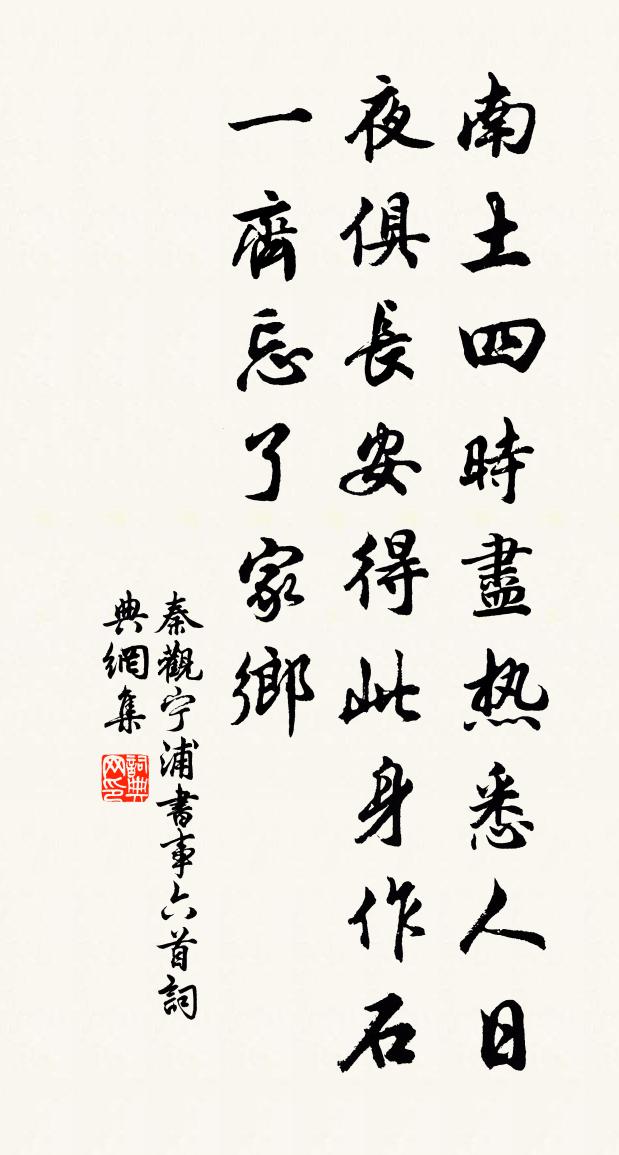 南土四時盡热悉人日
夜俱長安得此身作石
一齊忘了家鄉
秦觀宁浦書事六首詞
典網集
詞典
网印